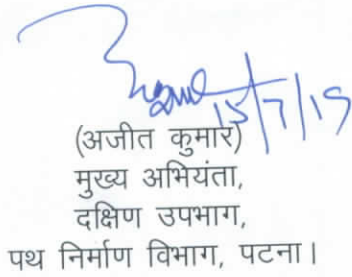 15/7/19
(अजीत कुमार)
मुख्य अभियंता,
दक्षिण उपभाग,
पथ निर्माण विभाग, पटना।